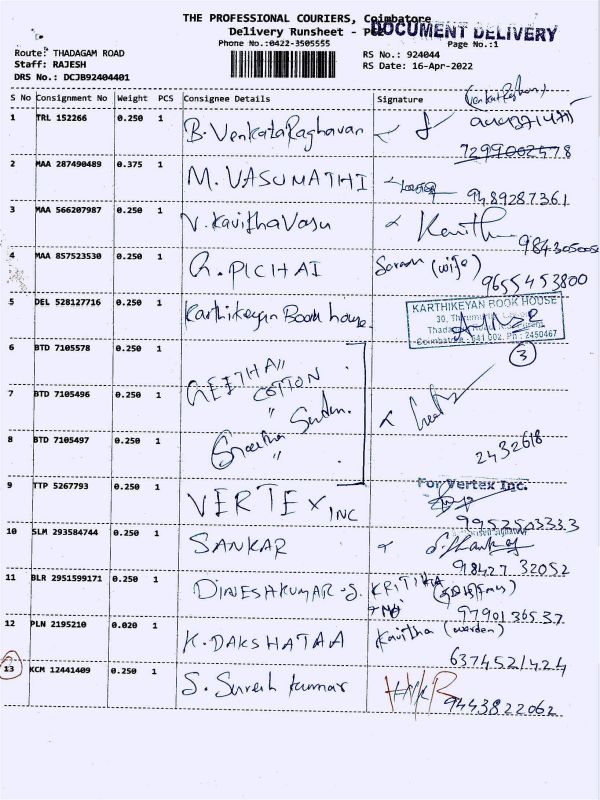 THE PROFESSIONAL COURIERS, Coimbatore
Delivery Runsheet -
DOCUMENT DELIVERY
Phone No.:0422-3505555
Page No.:1
Route: THADAGAM ROAD
RS No.: 924044
Staff: RAJESH
RS Date: 16-Apr-2022
DRS No.: DCJB92404401
S No Consignment No Weight PCS Consignee Details Signature
(Venkat Raghavan)
1 TRL 152266 0.250 1 B. Venkata Raghavan
7299002578
2 MAA 287490489 0.375 1 M. VASUMATHI 9489287361
3 MAA 566207987 0.250 1 V. Kavitha Vasu Kavitha
4 MAA 857523530 0.250 1 R. PICHAI (wife) 9655453800
5 DEL 528127716 0.250 1 Karthikeyan Book house.
KARTHIKEYAN BOOK HOUSE
Coimbatore - 641 002. Ph : 2450467
3
6 BTD 7105578 0.250 1 GEETHA "
COTTON
7 BTD 7105496 0.250 1 "
8 BTD 7105497 0.250 1 Geetha
"
2432618
9 TTP 5267793 0.250 1 VERTEX INC For Vertex Inc.
9952503333
10 SLM 293584744 0.250 1 SANKAR
98427 32052
11 BLR 2951599171 0.250 1 DINESHKUMAR .S. KRITIKA
9790136537
12 PLN 2195210 0.020 1 K. DAKSHATAA Kavitha (warden)
6374521424
13 KCM 12441409 0.250 1 S. Suresh Kumar
9443822062